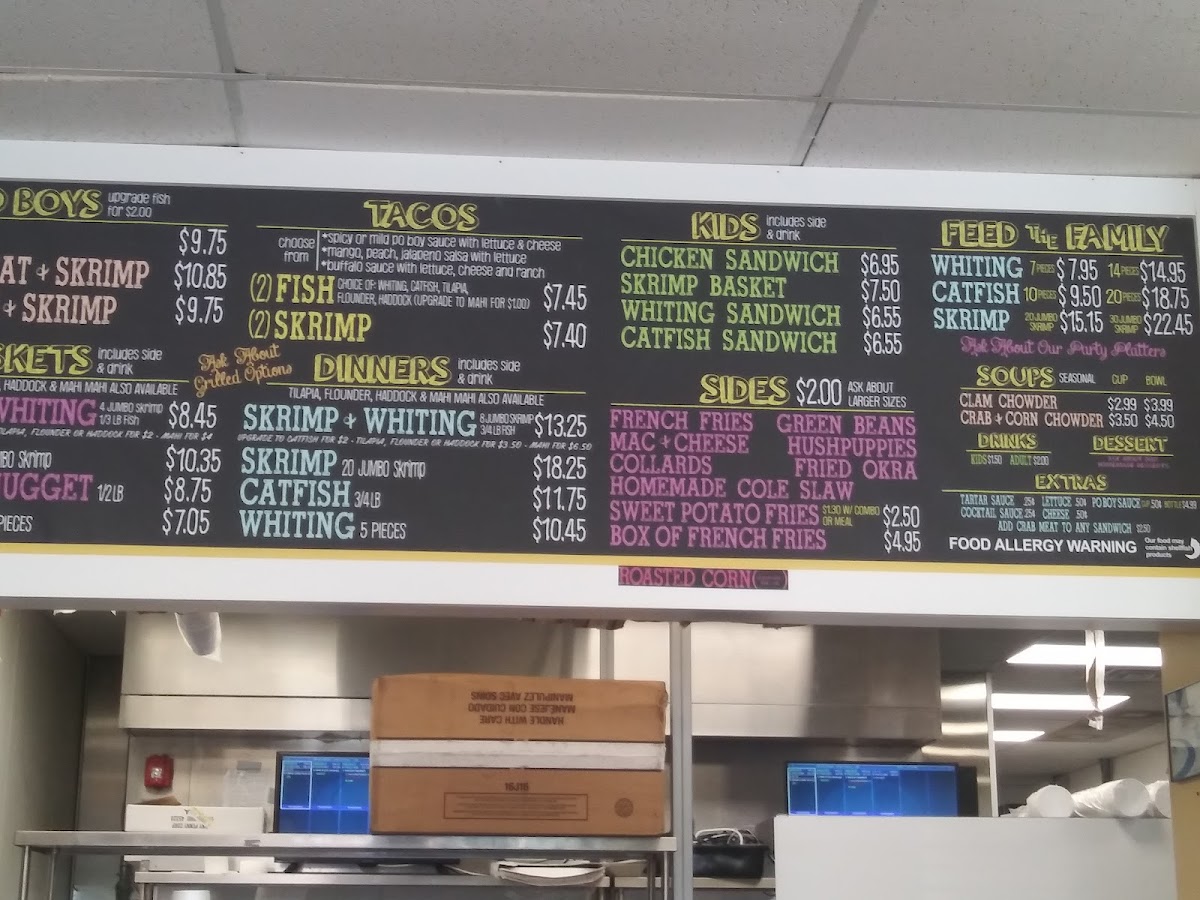 BOYS upgrade fish
for $2.00
$9.75
AT & SKRIMP $10.85
& SKRIMP $9.75
KETS includes side
& drink
HADDOCK & MAHI MAHI ALSO AVAILABLE
WHITING 4 JUMBO SKRIMP
1/3 LB FISH $8.45
TILAPIA, FLOUNDER OR HADDOCK FOR $2 - MAHI FOR $4
JUMBO SKRIMP $10.35
NUGGET 1/2 LB $8.75
PIECES $7.05
Ask About
Grilled Options
TACOS
choose
from
*spicy or mild po boy sauce with lettuce & cheese
*mango, peach, jalapeno salsa with lettuce
*buffalo sauce with lettuce, cheese and ranch
(2) FISH CHOICE OF: WHITING, CATFISH, TILAPIA,
FLOUNDER, HADDOCK (UPGRADE TO MAHI FOR $1.00) $7.45
(2) SKRIMP $7.40
DINNERS includes side
& drink
TILAPIA, FLOUNDER, HADDOCK & MAHI MAHI ALSO AVAILABLE
SKRIMP & WHITING 8 JUMBO SKRIMP
3/4 LB FISH $13.25
UPGRADE TO CATFISH FOR $2 - TILAPIA, FLOUNDER OR HADDOCK FOR $3.50 - MAHI FOR $6.50
SKRIMP 20 JUMBO SKRIMP $18.25
CATFISH 3/4 LB $11.75
WHITING 5 PIECES $10.45
KIDS includes side
& drink
CHICKEN SANDWICH $6.95
SKRIMP BASKET $7.50
WHITING SANDWICH $6.55
CATFISH SANDWICH $6.55
SIDES $2.00 ASK ABOUT
LARGER SIZES
FRENCH FRIES GREEN BEANS
MAC & CHEESE HUSHPUPPIES
COLLARDS FRIED OKRA
HOMEMADE COLE SLAW
SWEET POTATO FRIES $1.30 W/ COMBO
OR MEAL $2.50
BOX OF FRENCH FRIES $4.95
ROASTED CORN
FEED THE FAMILY
WHITING 7 PIECES $7.95 14 PIECES $14.95
CATFISH 10 PIECES $9.50 20 PIECES $18.75
SKRIMP 20 JUMBO
SKRIMP $15.15 30 JUMBO
SKRIMP $22.45
Ask About Our Party Platters
SOUPS SEASONAL CUP BOWL
CLAM CHOWDER $2.99 $3.99
CRAB & CORN CHOWDER $3.50 $4.50
DRINKS
KIDS $1.50 ADULT $2.00
DESSERT
EXTRAS
TARTAR SAUCE .25¢ LETTUCE .50¢ PO BOY SAUCE CUP .50¢ BOTTLE $4.99
COCKTAIL SAUCE .25¢ CHEESE .50¢
ADD CRAB MEAT TO ANY SANDWICH $2.50
FOOD ALLERGY WARNING Our food may
contain shellfish
products
HANDLE WITH CARE
MANEJESE CON CUIDADO
MANIPULEZ AVEC SOINS